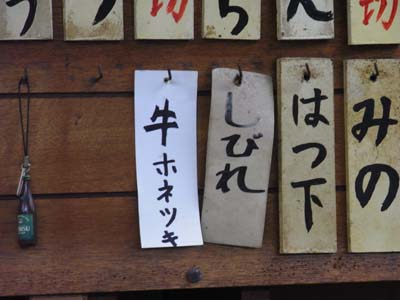 切
切
みの
はつ下
しびれ
牛ホネツキ